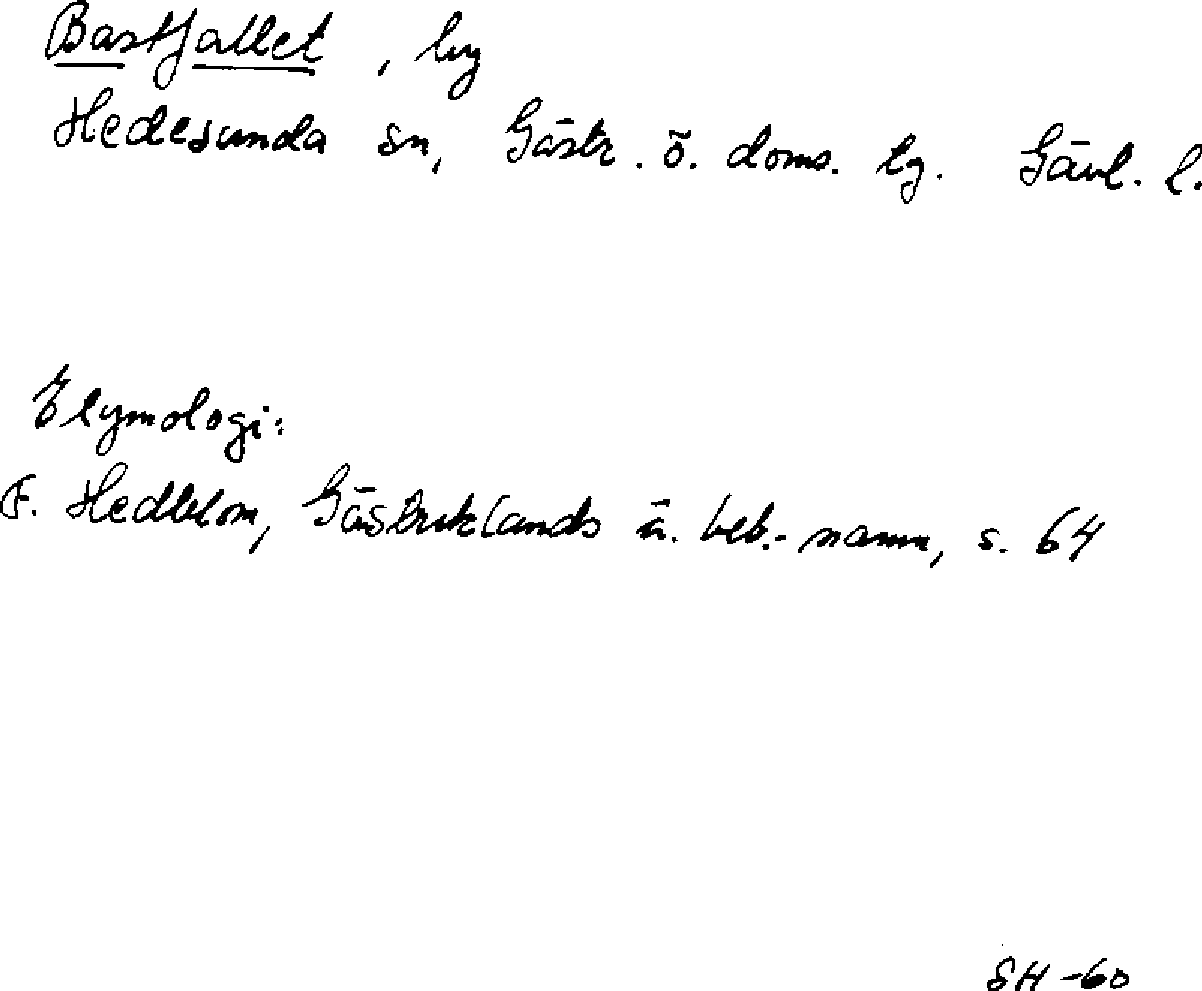 Bastfallet, by
Hedesunda sn, Gästr. ö. doms. lg. Gävl. l.
Etymologi:
F. Hedblom, Gästriklands ä. beb.-namn, s. 64
SH -60